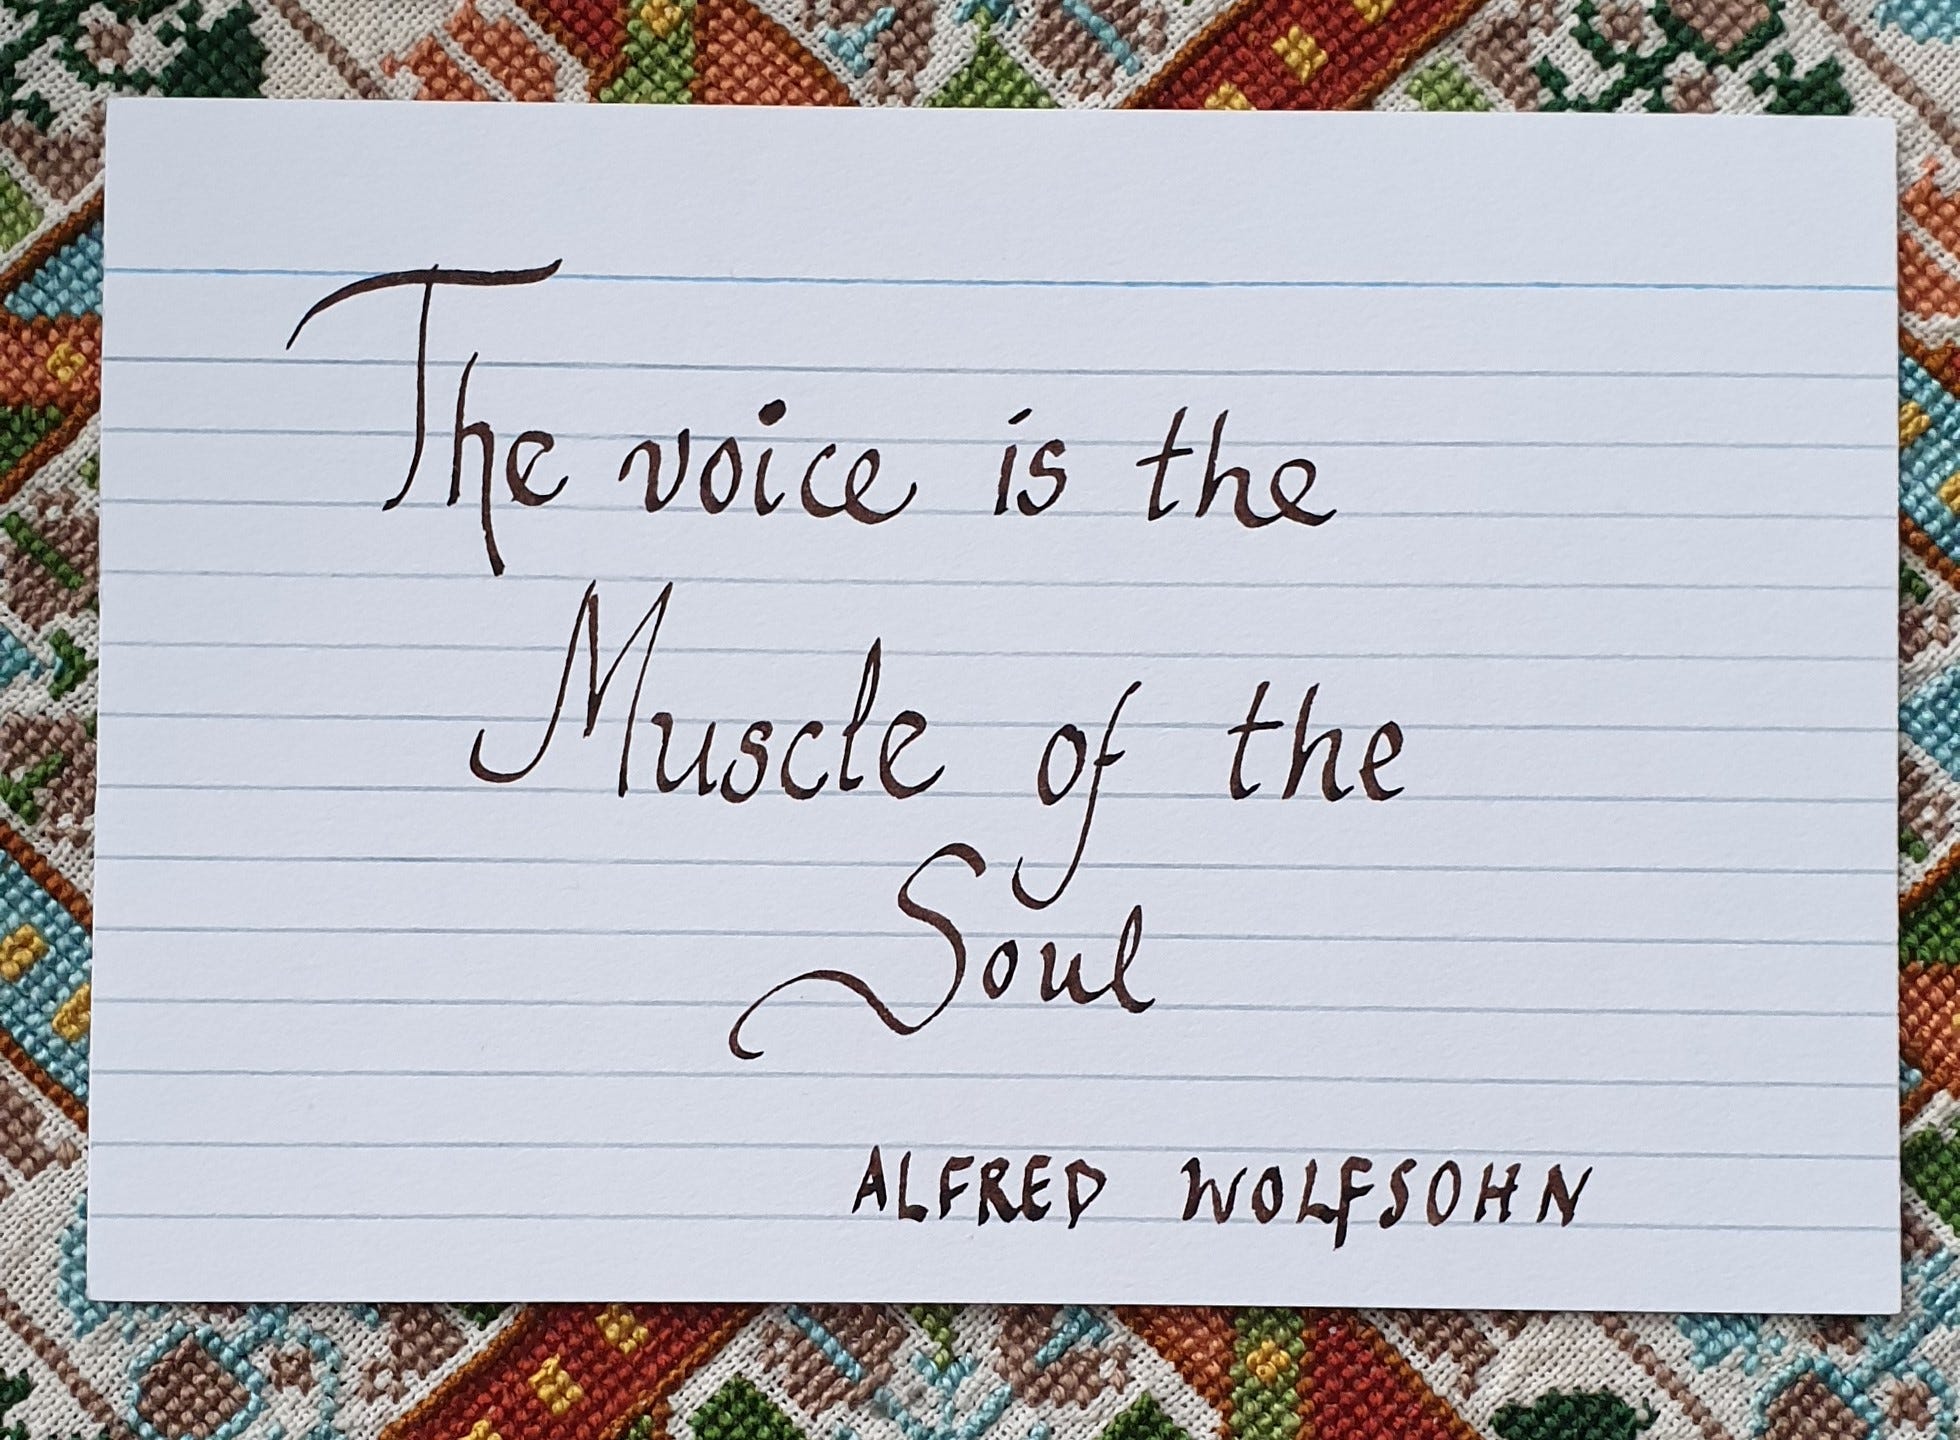 The voice is the
Muscle of the
Soul
ALFRED WOLFSOHN